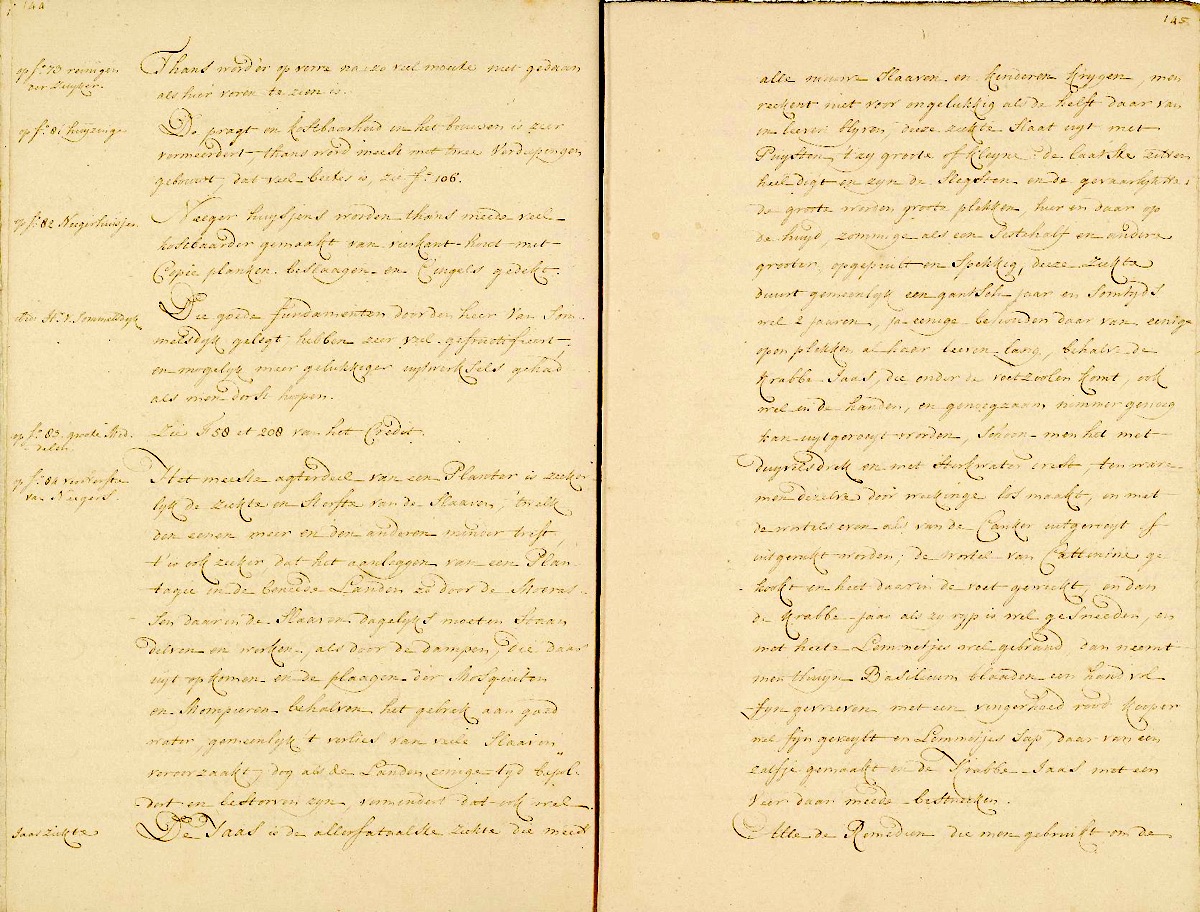 144
op f.º 73 reinigen
der Zuyker.
Thans word er op verre na zo veel moeite niet gedaan
als hier voren te zien is.
op f.º 81 huyzinge
De pragt en kostbaarheid in het bouwen is zeer
vermeerdert, thans word meest met twee Verdiepingen
gebouwt, dat veel beeter is, zie f.º 106.
op f.º 82 Neegerhuisjes.
Neeger huysjens worden thans meede veel
kostbaarder gemaakt van vierkant hout met
Copie planken beslaagen en Cingels gedekt.
ibid. H.r v. Sommelsdyk
Die goede fundamenten door den heer Van Som-
melsdyk gelegt hebben zeer veel gefructificeert,
en mogelyk meer gelukkiger uytwerksels gehad
als men dorst hoopen.
op f.º 83. groote Mid-
delen.
Zie F 58 et 208 van het Credit.
op f.º 84 versterfte
van Neegers.
Het meeste agterdeel van een Planter is zeeker-
lyk de ziekte en Sterfte van de Slaaven, 't welk
den eenen meer en den anderen minder treft,
't is ook zeeker dat het aanleggen van een Plan-
tagie in de beneede Landen zo door de Moeras-
sen daar in de Slaaven dagelyks moeten Staan
delven en werken, als door de dampen, die daar
uyt opkomen en de plaagen der Mosquiten
en Mompieren behalven het gebrek aan goed
water, gemeenlyk 't verlies van veele Slaaven
veroorzaakt, dog als de Landen eenige tyd bepol-
dert en bestorven zyn, vermindert dat ook wel.
Jaas ziekte
De Jaas is de allerfataalste ziekte die meest
145.
alle nieuwe Slaaven en kinderen krygen, men
reekent niet voor ongelukkig als de helft daar van
in leeven blyven, deeze ziekte Slaat uyt met
Puysten, 't zy groote of kleyne: de laatste zitten
heel digt en zyn de Slegsten en de gevaarlykste:
de groote worden groote plekken, hier en daar op
de huyd, zommige als een Pestehalf en andere
grooter, opgepuilt en Spekkig, deeze ziekte
duurt gemeenlyk een gantsch jaar en Somtyds
wel 2 jaaren, ja eenige behouden daar van eenige
open plekken al haar leeven lang, behalve de
Krabbe Jaas, die onder de voetzoolen komt, ook
wel in de handen, en genoegzaam nimmer genoeg
kan uytgeroeyt worden, Schoon men het met
duyvelsdrek en met Sterkwater crest, ten ware
men dezelve door weekinge los maakt, en met
de wortels even als van de Canker uitgeroeyt of
uitgerukt worden; de wortel van Cattemine ge-
kookt en heet daar in de voet geweekt, en dan
de Krabbe-jaas als zo ryp is wel gesneeden, en
met heete Lemmetjes wel gebrand, dan neemt
men thuyn Basilicum blaaden een hand vol
fyn gevreeven met een vingerhoed rood kooper
wel fyn gevylt en Lemmetjes Sap, daar van een
zalfje gemaakt en de Krabbe Jaas met een
Veer daar meede bestreeken.
Alle de Remedien, die men gebruikt om de